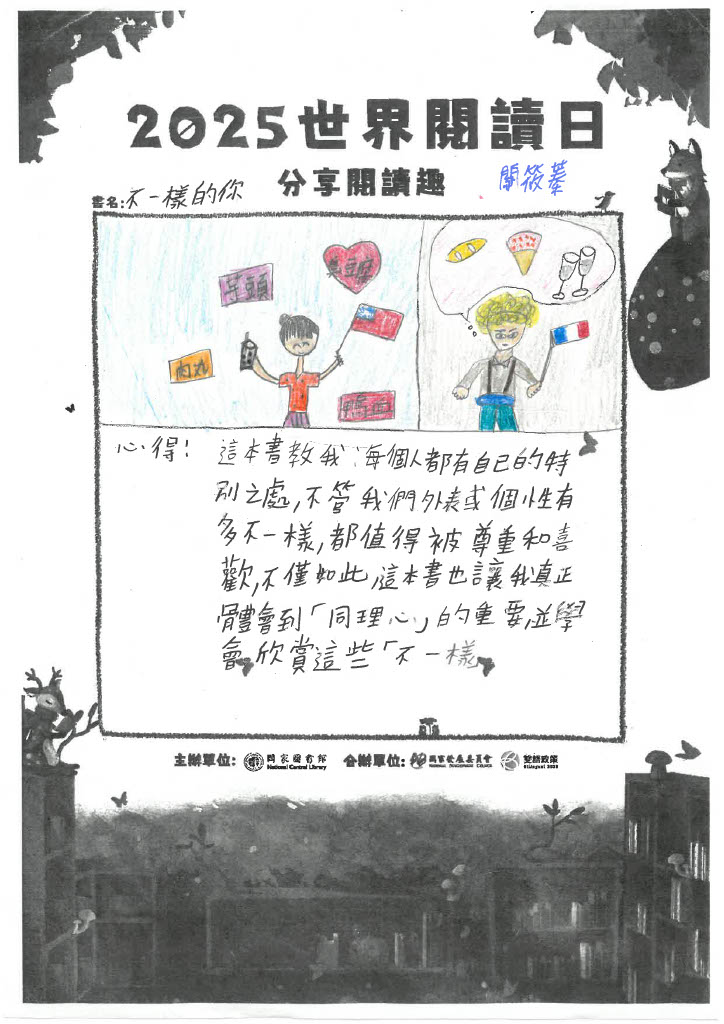 2025世界閱讀日
分享閱讀趣
關筱蓁
書名:不一樣的你
芋頭
肉丸
鴨血
心得: 這本書教我:每個人都有自己的特
別之處,不管我們外表或個性有
多不一樣,都值得被尊重和喜
歡,不僅如此,這本書也讓我真正
體會到「同理心」的重要,並學
會欣賞這些「不一樣」
主辦單位: 國家圖書館 合辦單位: 國家發展委員會 雙語政策
National Central Library NATIONAL DEVELOPMENT COUNCIL Bilingual 2030